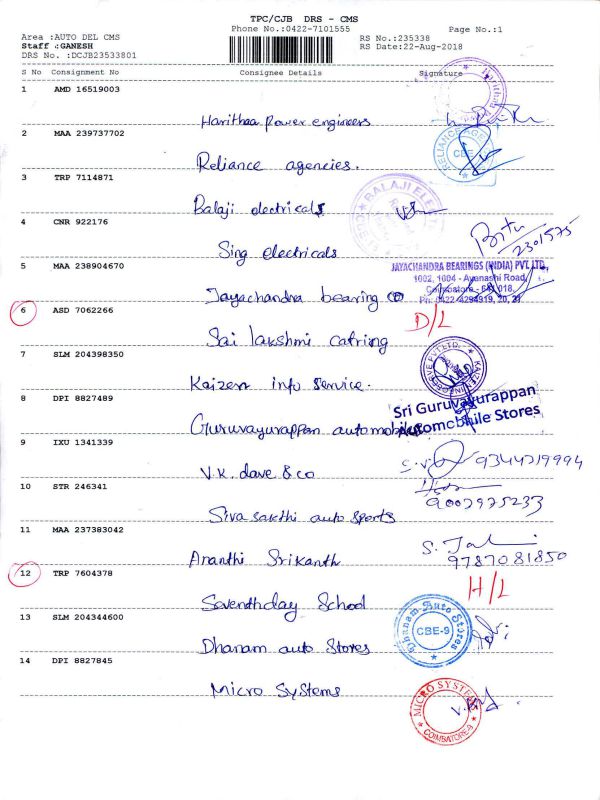 TPC/CJB DRS - CMS
Phone No.:0422-7101555
Page No.:1
Area :AUTO DEL CMS
RS No.:235338
Staff :GANESH
RS Date:22-Aug-2018
DRS No. :DCJB23533801
S No Consignment No Consignee Details Signature
1 AMD 16519003
Harithaa Power engineers
2 MAA 239737702
RELIANCE AGE
CBE
Reliance agencies.
3 TRP 7114871
BALAJI ELECT
Balaji electricals
4 CNR 922176
2301575
Sing electricals
5 MAA 238904670
JAYACHANDRA BEARINGS (INDIA) PVT. LTD.,
1002, 1004 - Avanashi Road,
Coimbatore - 641 018.
Ph: 0422-4294919, 20, 21
Jayachandra bearing co
6 ASD 7062266
D/L
Sai lakshmi catring
7 SLM 204398350
Kaizen info service.
8 DPI 8827489
Sri Guruvayurappan
Automobile Stores
Guruvayurappan automobiles
9 IXU 1341339
9344219994
V.K. dave & co
10 STR 246341
9002975233
Siva sakthi auto sports
11 MAA 237383042
9787081850
Ananthi Srikanth
12 TRP 7604378
H/L
Seventhday School
13 SLM 204344600
Dhanam Auto Stores
CBE-9
Dhanam auto Stores
14 DPI 8827845
Micro Systems
MICRO SYSTEMS
COIMBATORE-9